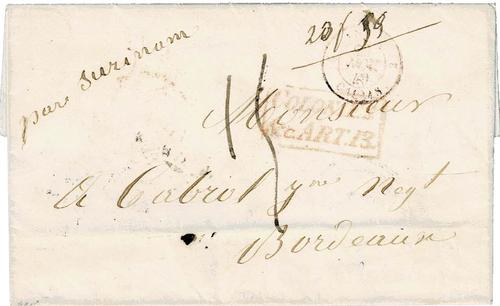 par Surinam
23/. 59
Monsieur
15
COLONIES
&c. ART. 13.
A Cabrol Jne Negt
Bordeaux